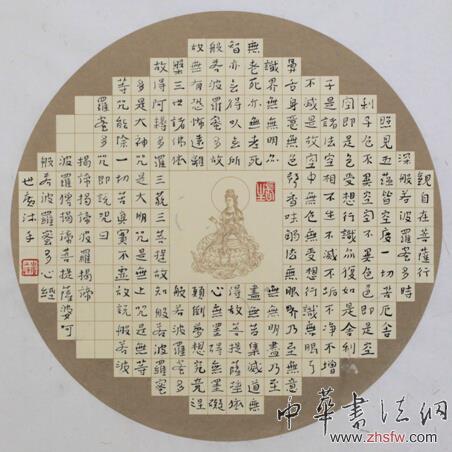 觀自在菩薩行
深般若波羅蜜多時
照見五蘊皆空度一切苦厄舍
利子色不異空空不異色色即是空
空即是色受想行識亦復如是舍利
子是諸法空相不生不滅不垢不淨不增
不減是故空中無色無受想行識無眼耳
鼻舌身意無色聲香味觸法無眼界乃至無意
識界無無明亦
無無明盡乃至
無老死亦無老死
盡無苦集滅道無
智亦無得以無所
得故菩提薩埵依
般若波羅蜜多故
心無罣礙無罣礙
故無有恐怖遠離
顛倒夢想究竟涅
槃三世諸佛依
般若波羅蜜多
故得阿耨多羅三藐三菩提故知般若波羅蜜
多是大神咒是大明咒是無上咒是無
等等咒能除一切苦真實不虛故說般若波
羅蜜多咒即說咒曰
揭諦揭諦波羅揭諦
波羅僧揭諦菩提薩婆訶
般若波羅蜜多心經
沐手
中華書法網
www.zhsfw.com